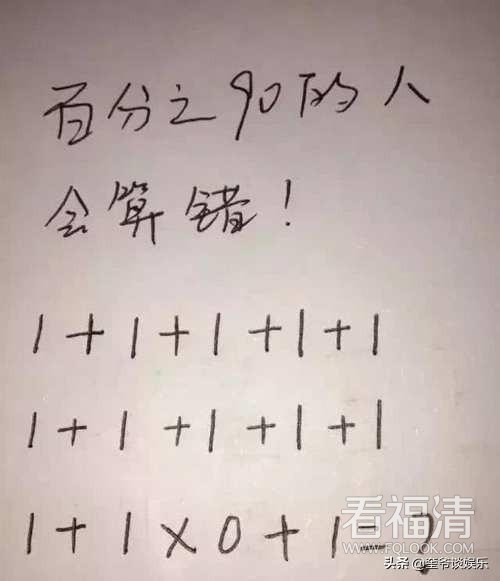 百分之90的人
会算错!
1+1+1+1+1
1+1+1+1+1
1+1×0+1=?
看福清
WWW.FOLOOK.COM
头条@奎爷谈娱乐